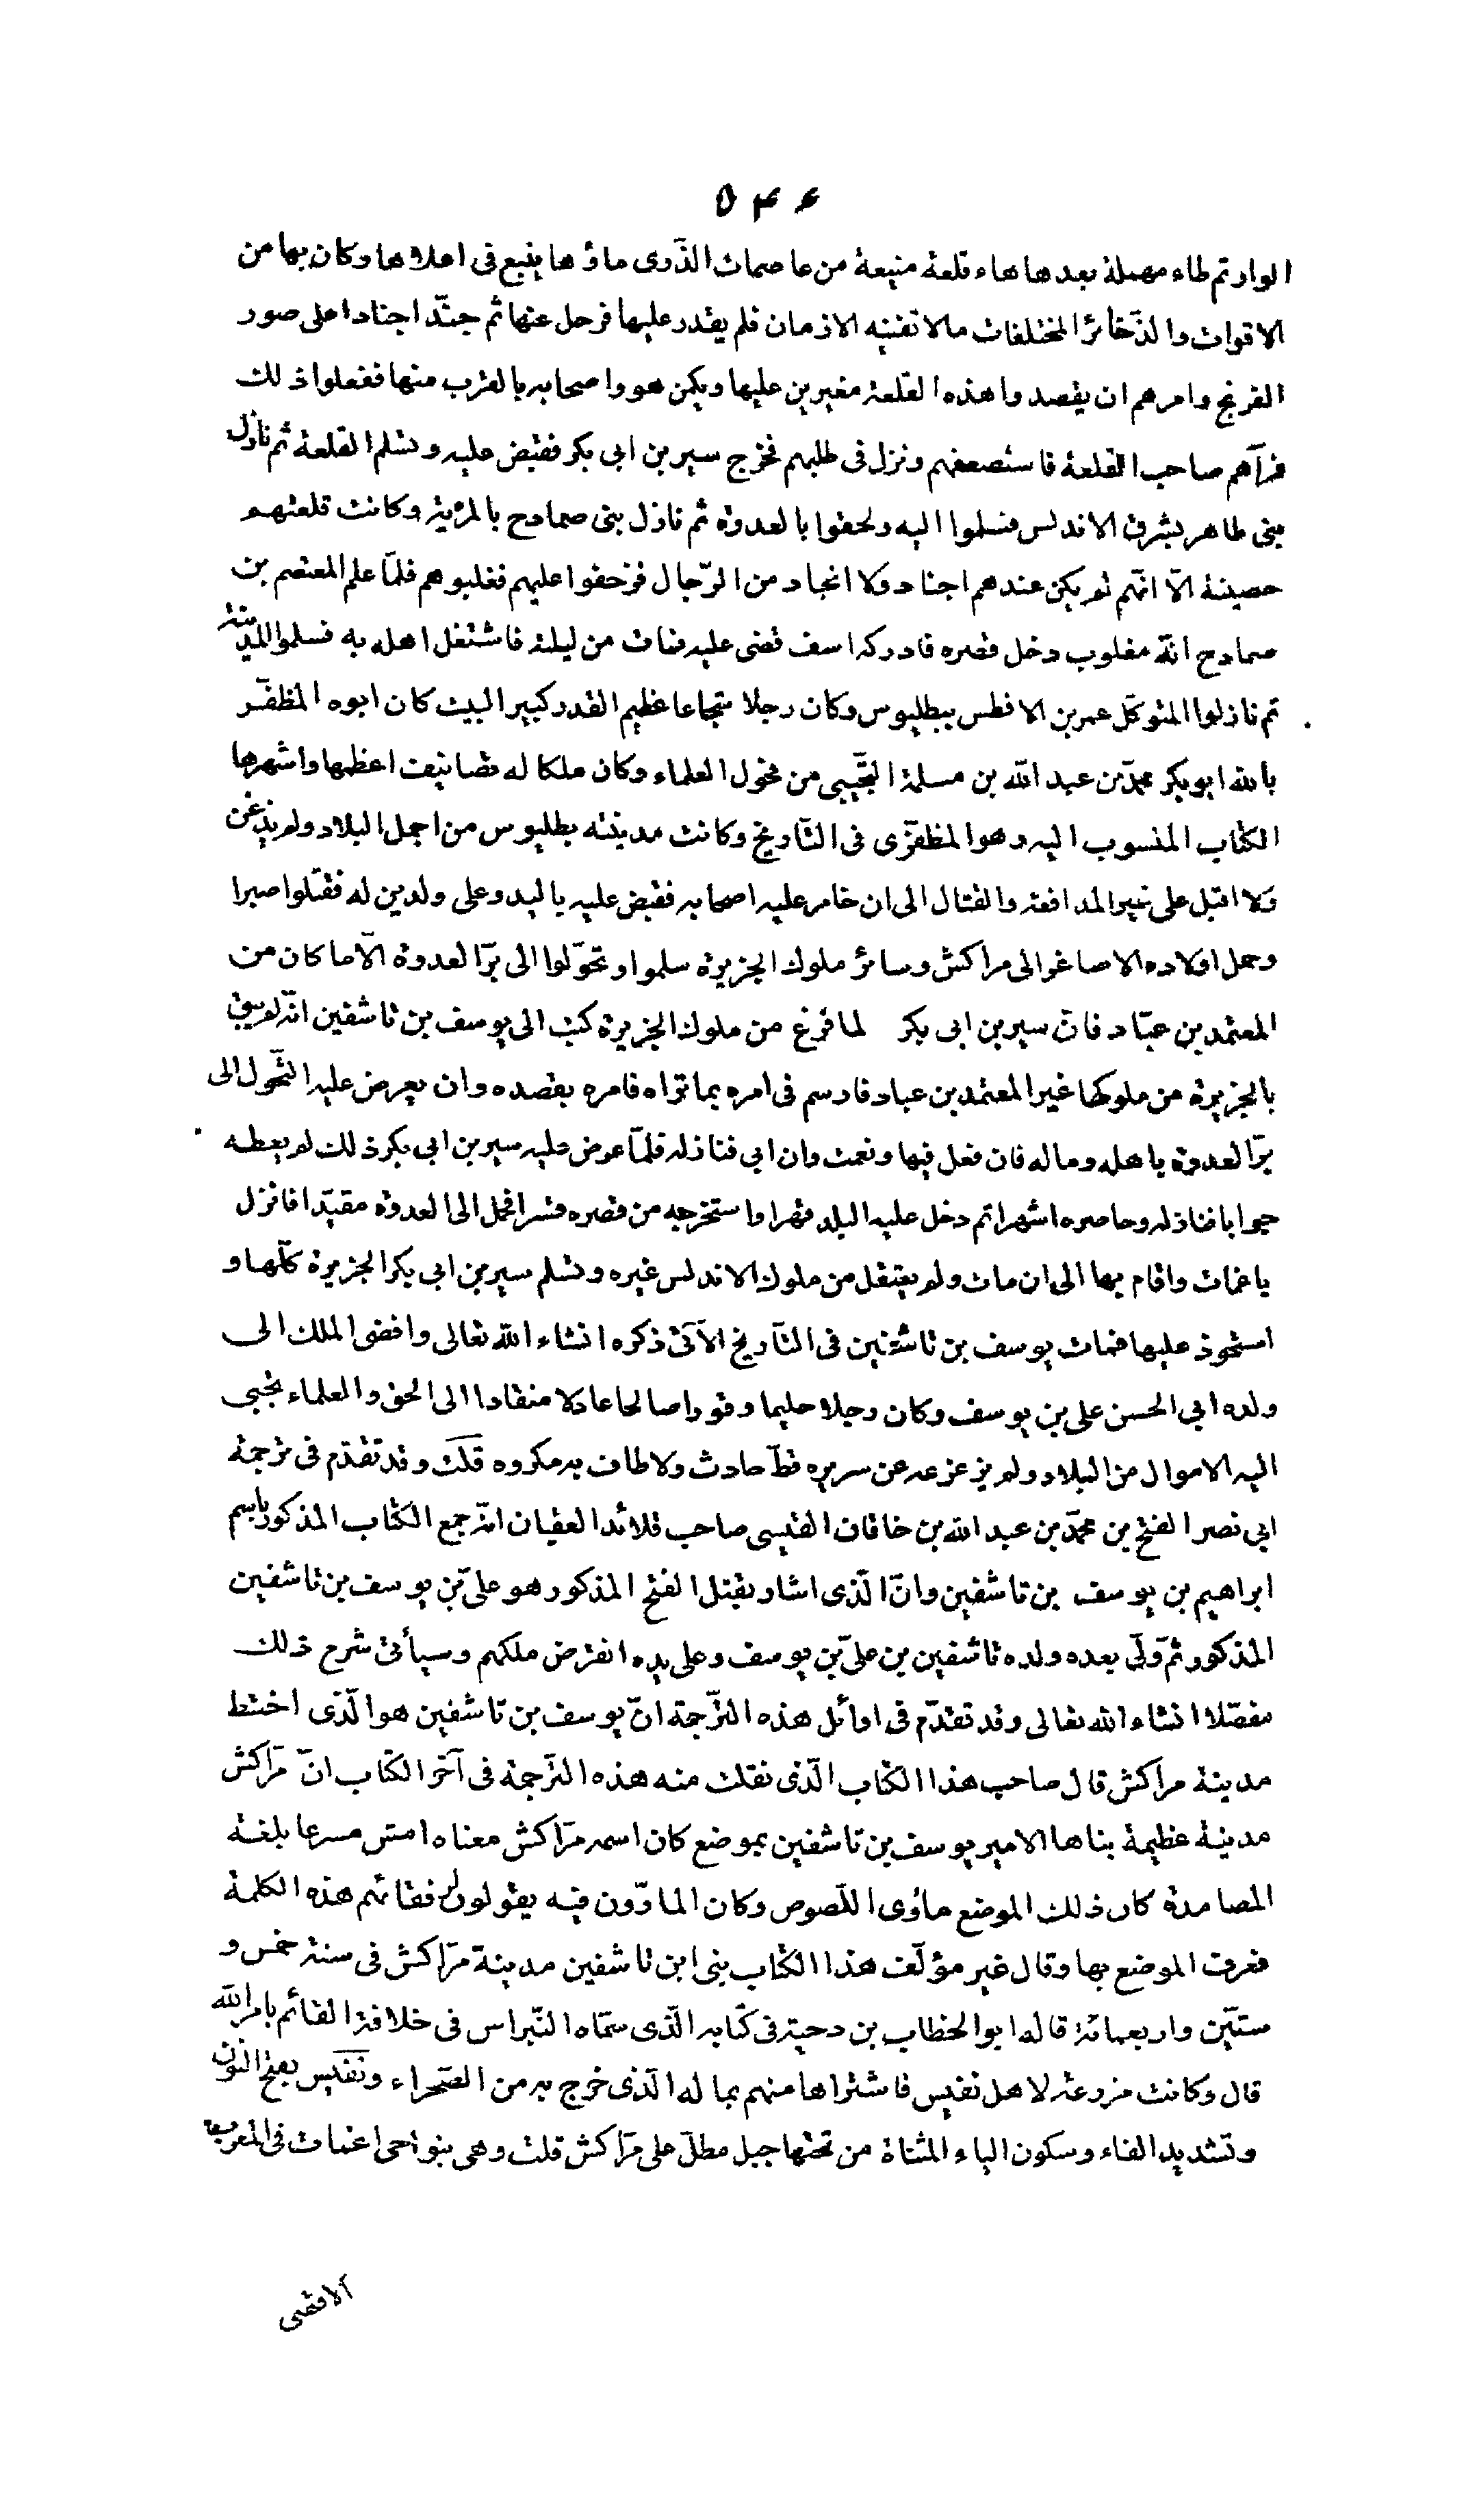 ۵۴۶
الواو ثم طاء مهملة بعدها هاء قلعة منيعة من عاصمات الذّرى ماؤها ينبع فى اعلاها وكان بها من
الاقوات والذّخائر المختلفات مالا تفنيه الازمان فلم يقدر عليها فرحل عنها ثم جنّد اجنادا على صور
الفرنج وامرهم ان يقصدوا هذه القلعة مغيرين عليها ويكمن هو واصحابه بالقرب منها ففعلوا ذلك
فرآهم صاحب القلعة فاستضعفهم ونزل فى طلبهم فخرج سير بن ابى بكر فقبض عليه وتسلم القلعة ثم نازل
بنى طاهر بشرق الاندلس فسلموا اليه ولحقوا بالعدوة ثم نازل بنى صمادح بالمريّة وكانت قلعتهم
حصينة الّا انّهم لم يكن عندهم اجناد ولا انجاد من الرّجال فزحفوا عليهم فغلبوهم فلمّا علم المعتصم بن
صمادح انّه مغلوب دخل قصره فادركه اسف قضى عليه فمات من ليلته فاشتغل اهله به فسلموا المدينة
ثم نازلوا المتوكّل عمر بن الافطس ببطليوس وكان رجلا شجاعا عظيم القدر كبير البيت كان ابوه المظفّر
بالله ابو بكر محمّد بن عبد الله بن مسلمة التّجيبى من فحول العلماء وكان ملكا له تصانيف اعظمها واشهرها
الكتاب المنسوب اليه وهو المظفّرى فى التّاريخ وكانت مدينته بطليوس من اجمل البلاد ولم يذعن
ولا اقبل على غير المدافعة والقتال الى ان خامر عليه اصحابه فقبض عليه باليد وعلى ولدين له فقتلوا صبرا
وحمل اولاده الاصاغر الى مراكش وسائر ملوك الجزيرة سلموا وتحوّلوا الى برّ العدوة الّا ما كان من
المعتمد بن عبّاد فانّ سير بن ابى بكر لما فرغ من ملوك الجزيرة كتب الى يوسف بن تاشفين انّه لم يبق
بالجزيرة من ملوكها غير المعتمد بن عباد فارسم فى امره بما تراه فامره بقصده وان يعرض عليه التّحول الى
برّ العدوة باهله وماله فان فعل فيها ونعمت وان ابى فنازله فلمّا عرض عليه سير بن ابى بكر ذلك لم يعطه
جوابا فنازله وحاصره اشهرا ثم دخل عليه البلد قهرا واستخرجه من قصره قسرا فحمل الى العدوة مقيّدا فانزل
باغمات واقام بها الى ان مات ولم يعتقل من ملوك الاندلس غيره وتسلم سير بن ابى بكر الجزيرة كلّها و
استحوذ عليها فمات يوسف بن تاشفين فى التّاريخ الآتى ذكره انشاء الله تعالى وافضى الملك الى
ولده ابى الحسن على بن يوسف وكان رجلا حليما وقورا صالحا عادلا منقادا الى الحق والعلماء تجبى
اليه الاموال من البلاد ولم يزعزعه عن سريره قطّ حادث ولا طاف به مكروه قلت وقد تقدّم فى ترجمة
ابى نصر الفتح بن محمّد بن عبد الله بن خاقان القيسى صاحب قلائد العقيان انّه جمع الكتاب المذكور باسم
ابراهيم بن يوسف بن تاشفين وانّ الّذى اشار بقتل الفتح المذكور هو علىّ بن يوسف بن تاشفين
المذكور ثم ولّى بعده ولده تاشفين بن علىّ بن يوسف وعلى يده انقرض ملكهم وسيأتى شرح ذلك
مفصّلا انشاء الله تعالى وقد تقدّم فى اوائل هذه التّرجمة انّ يوسف بن تاشفين هو الّذى اختط
مدينة مراكش قال صاحب هذا الكتاب الّذى نقلت منه هذه التّرجمة فى آخر الكتاب انّ مرّاكش
مدينة عظيمة بناها الامير يوسف بن تاشفين بموضع كان اسمه مرّاكش معناه امش مسرعا بلغة
المصامدة كان ذلك الموضع مأوى اللّصوص وكان المارّون فيه يقولون لرفقائهم هذه الكلمة
فعرف الموضع بها وقال غير مؤلّف هذا الكتاب بنى ابن تاشفين مدينة مرّاكش فى سنة خمس و
ستّين واربعمائة قاله ابو الخطاب بن دحية فى كتابه الّذى سمّاه النّبراس فى خلافة القائم بامر الله
قال وكانت مزرعة لاهل نفيس فاشتراها منهم بماله الّذى خرج به من الصّحراء ونفّيس بفتح النون
وتشديد الفاء وسكون الياء المثناة من تحتها جبل مطلّ على مرّاكش قلت وهى بنواحى اغمات فى المغرب
الاقصى